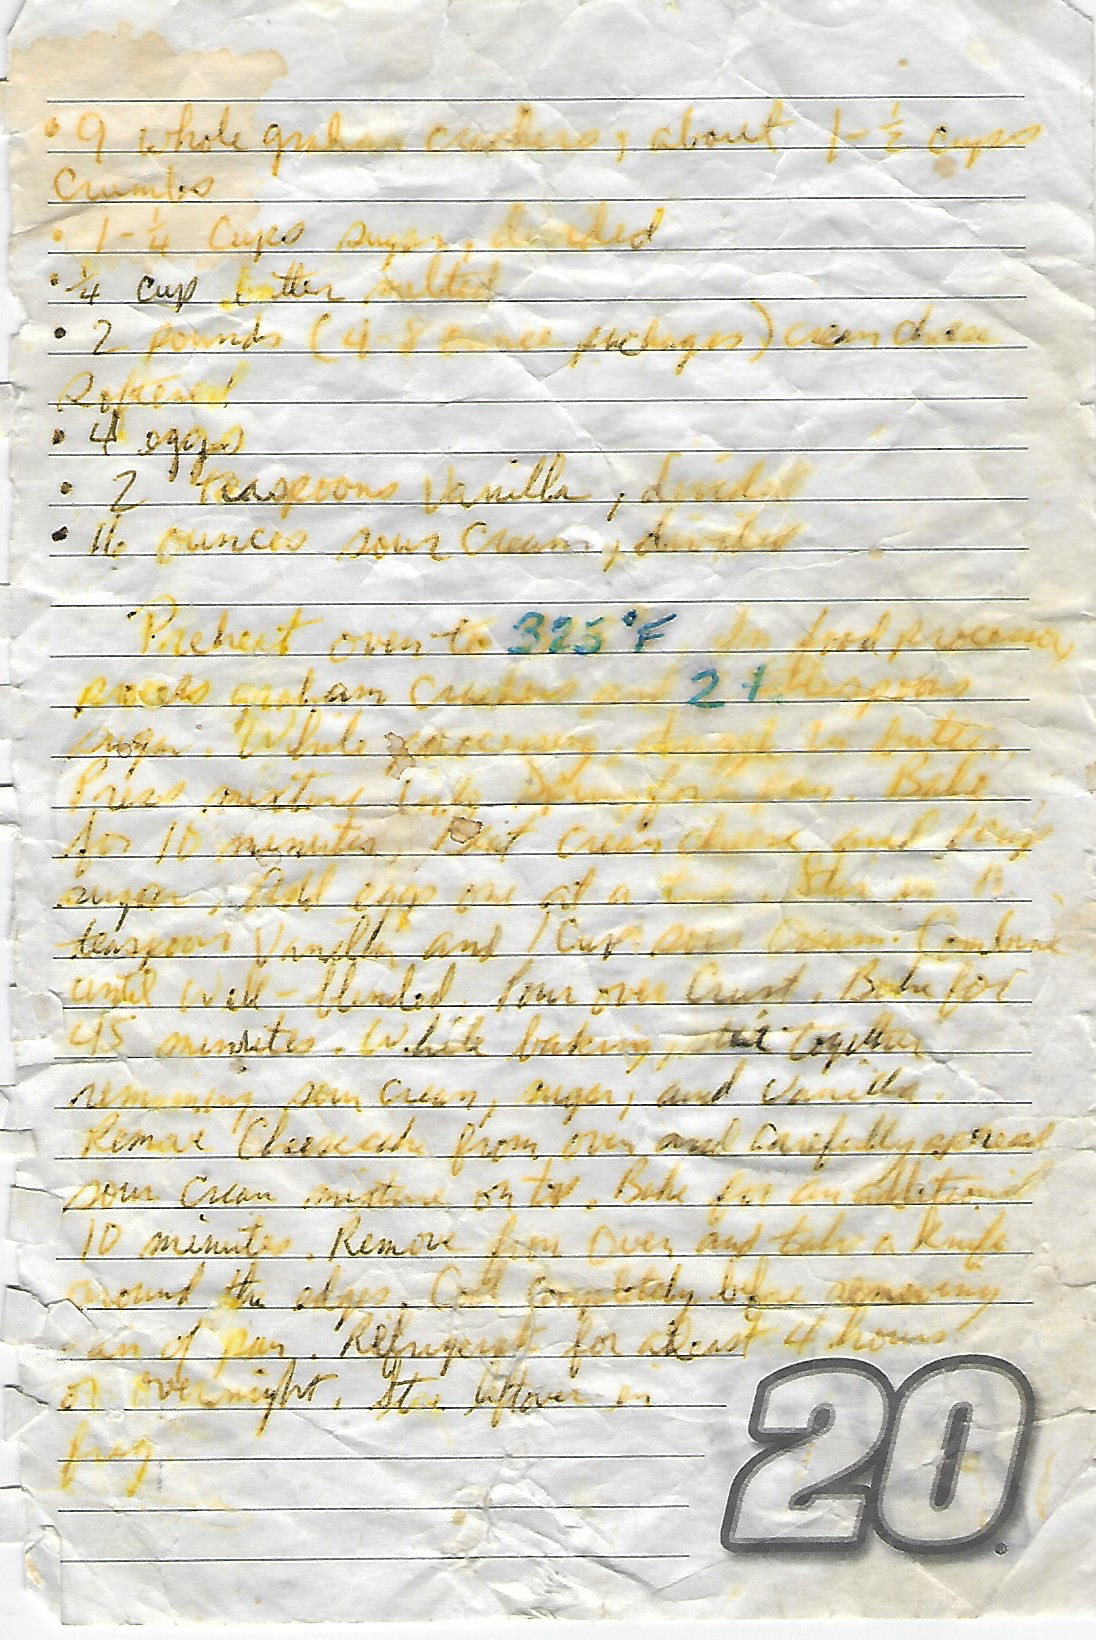 • 9 whole graham crackers, about 1-½ cups
Crumbs
• 1-¼ Cups sugar, divided
• ¼ cup butter melted
• 2 pounds (4-8 ounce packages) cream cheese
Softened
• 4 eggs
• 2 teaspoons Vanilla, divided
• 16 ounces sour Cream, divided
Preheat oven to 325°F. In food processor,
process graham Crackers and 2 t teaspoons
sugar. While processing, drizzle in butter.
Press mixture into Springform pan. Bake
for 10 minutes. Beat cream cheese and
sugar, Add eggs one at a time. Stir in
teaspoon Vanilla and 1 Cup sour Cream. Combine
until well-blended. Pour over Crust. Bake for
45 minutes. While baking, stir together
remaining sour Cream, sugar, and Vanilla.
Remove Cheesecake from oven and carefully spread
sour Cream mixture on top. Bake for an additional
10 minutes. Remove from Oven and take a knife
around the edges. Cool completely before removing
of pan. Refrigerate for at least 4 hours
or overnight. Store leftover in
frig
20